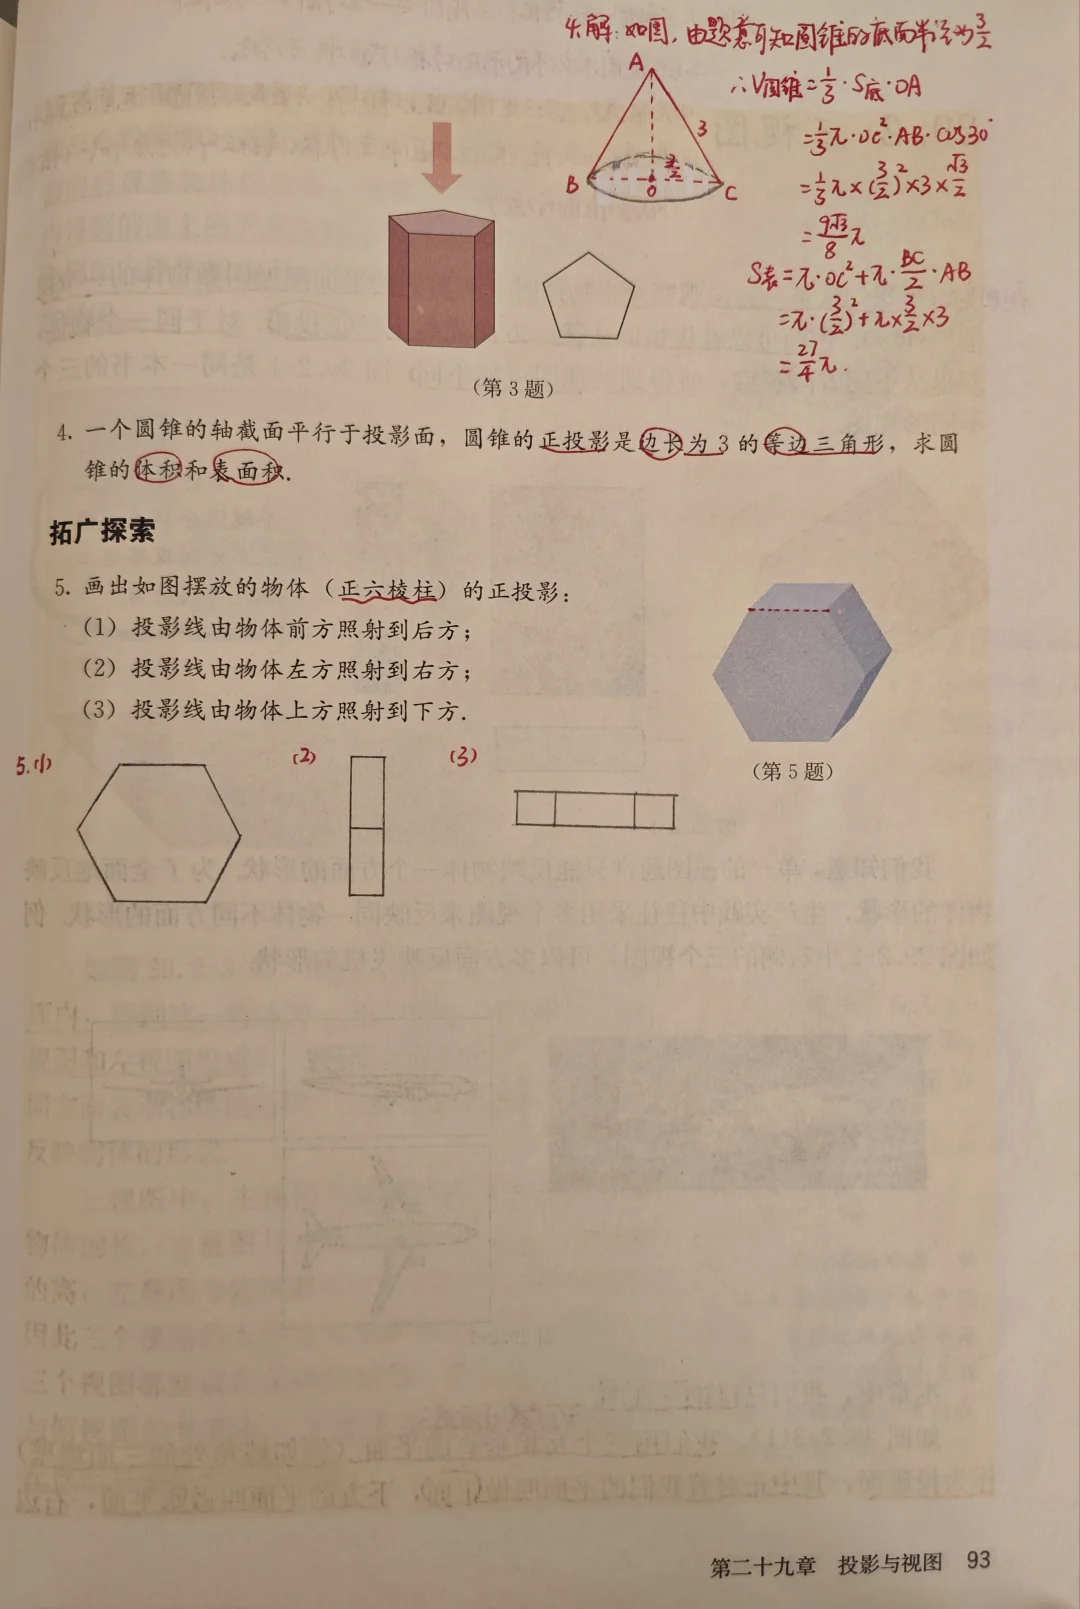 4.解:如图,由题意可知圆锥的底面半径为3/2
∴V圆锥=1/3·S底·OA
=1/3π·OC²·AB·cos30°
=1/3π×(3/2)²×3×√3/2
=9√3/8π
S表=π·OC²+π·BC/2·AB
=π·(3/2)²+π×3/2×3
=27/4π.
A
3
3/2
B
O
C
(第3题)
4. 一个圆锥的轴截面平行于投影面,圆锥的正投影是边长为3的等边三角形,求圆
锥的体积和表面积.
拓广探索
5. 画出如图摆放的物体(正六棱柱)的正投影:
(1) 投影线由物体前方照射到后方;
(2) 投影线由物体左方照射到右方;
(3) 投影线由物体上方照射到下方.
(第5题)
5.(1)
(2)
(3)
第二十九章 投影与视图 93